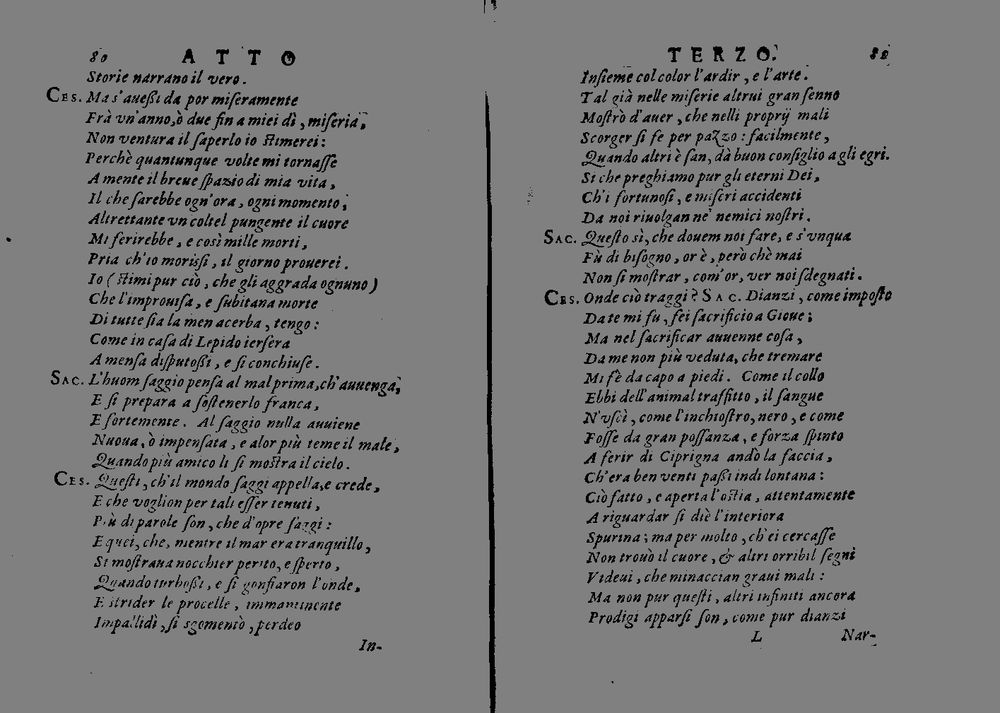 80 ATTO
Storie narrano il vero.
CES. Ma s'aueßi da por miseramente
Frà vn'anno, ò due fin a miei dì, miseria,
Non ventura il saperlo io stimerei:
Perchè quantunque volte mi tornasse
A mente il breue spazio di mia vita,
Il che sarebbe ogn'ora, ogni momento;
Altrettante vn coltel pungente il cuore
Mi ferirebbe, e così mille morti,
Pria ch'io morissi, il giorno prouerei.
Io (stimi pur ciò, che gli aggrada ognuno)
Che l'improuisa, e subitana morte
Di tutte sia la men acerba, tengo:
Come in casa di Lepido iersera
A mensa disputoßi, e si conchiuse.
SAC. L'huom saggio pensa al mal prima, ch'auuenga,
E si prepara a sostenerlo franca,
E fortemente. Al saggio nulla auuiene
Nuoua, ò impensata, e alor più teme il male,
Quando più amico li si mostra il cielo.
CES. Questi, ch'il mondo saggi appella, e crede,
E che voglion per tali esser tenuti,
Più di parole son, che d'opre saggi:
E quei, che, mentre il mar era tranquillo,
Si mostraua nocchier perito, e sperto,
Quando turboßi, e si gonfiaron l'onde,
E strider le procelle, immantinente
Impallidì, si sgomentò, perdeo
In-
TERZO. 81
Insieme col color l'ardir, e l'arte.
Tal già nelle miserie altrui gran senno
Mostrò d'auer, che nelli proprij mali
Scorger si fe per pazzo: facilmente,
Quando altri è san, dà buon consiglio a gli egri.
Si che preghiamo pur gli eterni Dei,
Ch'i fortunosi, e miseri accidenti
Da noi riuolgan ne' nemici nostri.
SAC. Questo sì, che douem noi fare, e s'vnqua
Fù di bisogno, or è, però chè mai
Non si mostrar, com'or, ver noi sdegnati.
CES. Onde ciò traggi? SAC. Dianzi, come imposto
Da te mi fu, fei sacrificio a Gioue;
Ma nel sacrificar auuenne cosa,
Da me non più veduta, che tremare
Mi fè da capo a piedi. Come il collo
Ebbi dell'animal trafitto, il sangue
N'vscì, come l'inchiostro, nero, e come
Fosse da gran possanza, e forza spinto
A ferir di Ciprigna andò la faccia,
Ch'era ben venti paßi indi lontana:
Ciò fatto, e aperta l'ostia, attentamente
A riguardar si diè l'interiora
Spurina; ma per molto, ch'ei cercasse
Non trouò il cuore, & altri orribil segni
Videui, che minaccian graui mali:
Ma non pur questi, altri infiniti ancora
Prodigi apparsi son, come pur dianzi
L Nar-